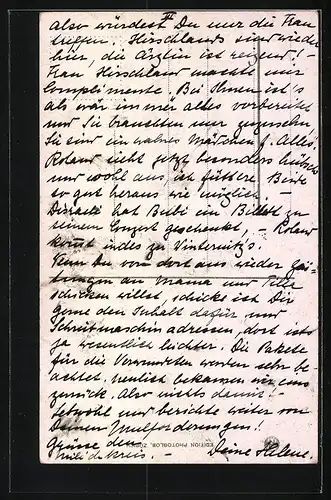 II
also würdest Du nur die Frau
treffen. Hirschlands sind wieder
hier, die Ärztin ist reizend! –
Frau Hirschland machte mir
Complimente. Bei Ihnen ist's
als wär immer alles vorbereitet
und Sie brauchten nur zuzusehn,
Sie sind ein wahres Mädchen f. Alles.
Roland sieht jetzt besonders hübsch
und wohl aus ich füttere Beide
so gut heraus wie möglich –
hat Bubi ein Billett zu
seinem Conzert geschenkt, – Roland
kommt indes zu
Wenn Du von dort aus wieder
an Mama und
schicken willst, schicke ich Dir
gerne den Inhalt dafür und
Schreibmaschin adressen, dort ists
ja wesentlich leichter. Die Pakete
für die Verwandten werden sehr be-
achtet, neulich bekamen wir eins
zurück. Also nichts damit! –
Lebwohl und berichte weiter von
Deinen
Grüsse den
kreis. – Deine Helene.
EDITION PHOTOGLOB, ZÜRICH